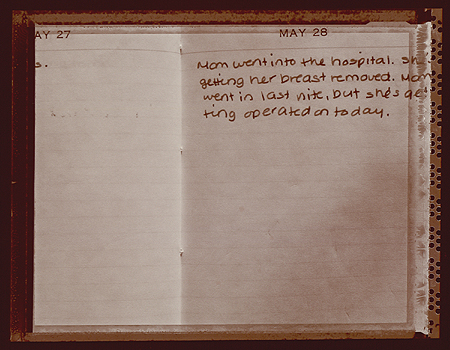 AY 27
MAY 28
s.
Mom went into the hospital. She
getting her breast removed. Mom
went in last nite, but she's get
ting operated on today.